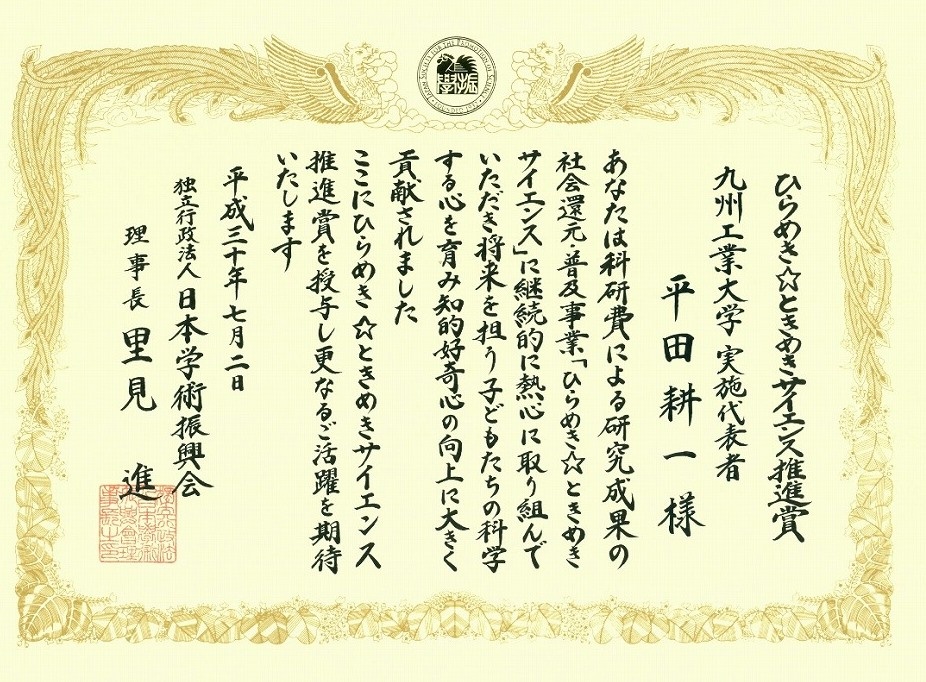 JAPAN SOCIETY FOR THE PROMOTION OF SCIENCE
FOUNDED 1932
ひらめき☆ときめきサイエンス推進賞
九州工業大学 実施代表者
平田耕一様
あなたは科研費による研究成果の
社会還元・普及事業「ひらめき☆ときめき
サイエンス」に継続的に熱心に取り組んで
いただき将来を担う子どもたちの科学
する心を育み知的好奇心の向上に大きく
貢献されました
ここにひらめき☆ときめきサイエンス
推進賞を授与し更なるご活躍を期待
いたします
平成三十年七月二日
独立行政法人日本学術振興会
理事長 里見 進